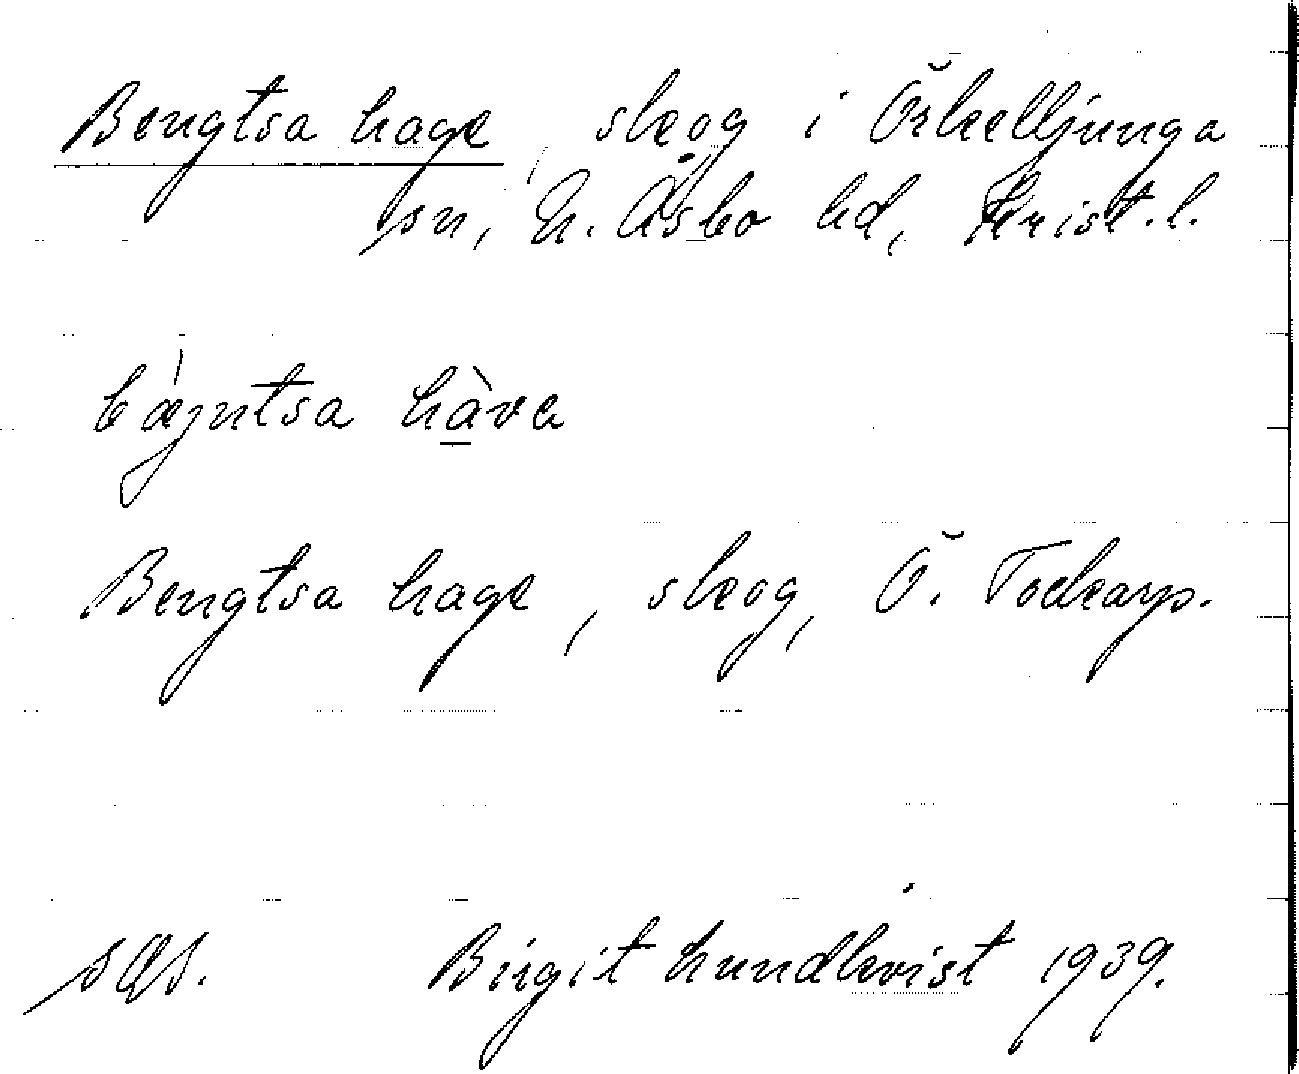 Bengtsa hage, skog i Örkelljunga
sn, N. Åsbo hd, Krist. l.
bǽjntsa hàva
Bengtsa hage, skog, Ö. Tockarp.
Birgit Lundkvist 1939.